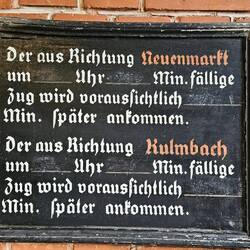 Der aus Richtung Neuenmarkt
um ____ Uhr ____ Min. fällige
Zug wird voraussichtlich ____
Min. später ankommen.
Der aus Richtung Kulmbach
um ____ Uhr ____ Min. fällige
Zug wird voraussichtlich ____
Min. später ankommen.